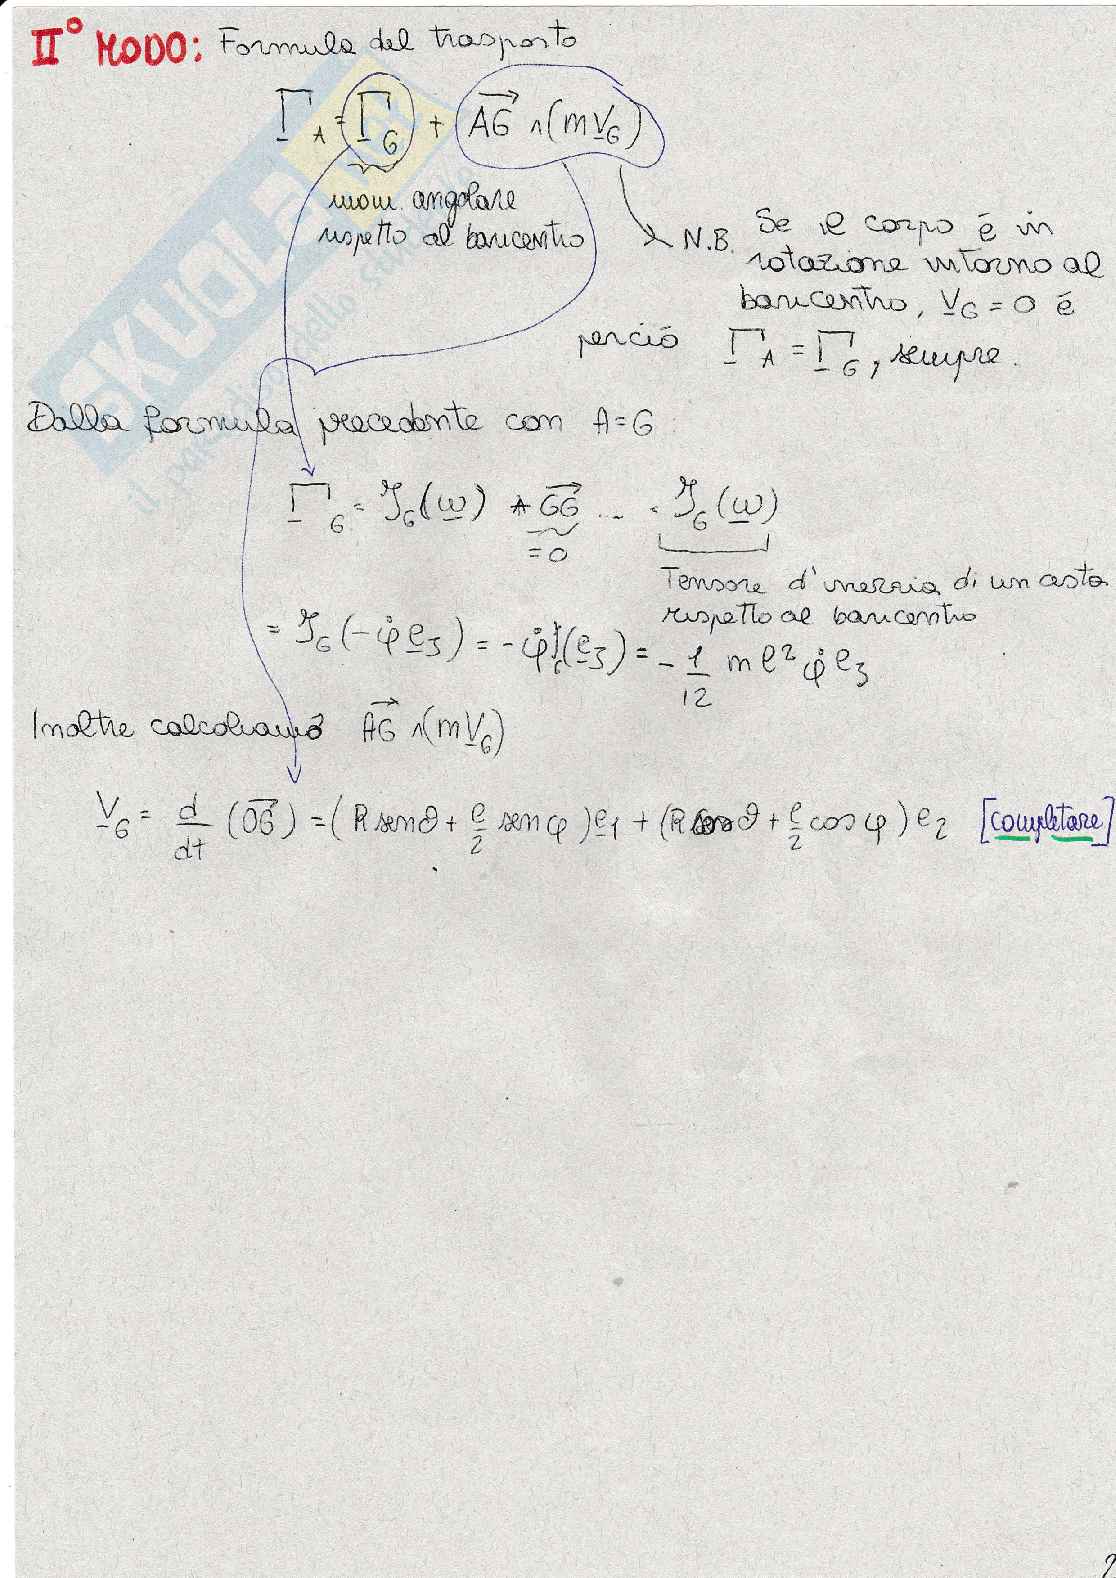 II° MODO: Formula del trasporto
Γ_A = Γ_G + AG ∧ (m V_G)
mom. angolare
rispetto al baricentro
N.B. Se il corpo è in
rotazione intorno al
baricentro, V_G = 0 e
perciò Γ_A = Γ_G, sempre.
Dalla formula precedente con A=G:
Γ_G = ℐ_G(ω) + GG ... = ℐ_G(ω)
=0
Tensore d'inerzia di un asta
rispetto al baricentro
= ℐ_G(-φ̇ e_3) = -φ̇ ℐ_G(e_3) = -1/12 m ℓ² φ̇ e_3
Inoltre calcoliamo AG ∧ (m V_G)
V_G = d/dt (OG) = (R senθ + ℓ/2 senφ) e_1 + (R cosθ + ℓ/2 cosφ) e_2 [completare]
SKUOLA